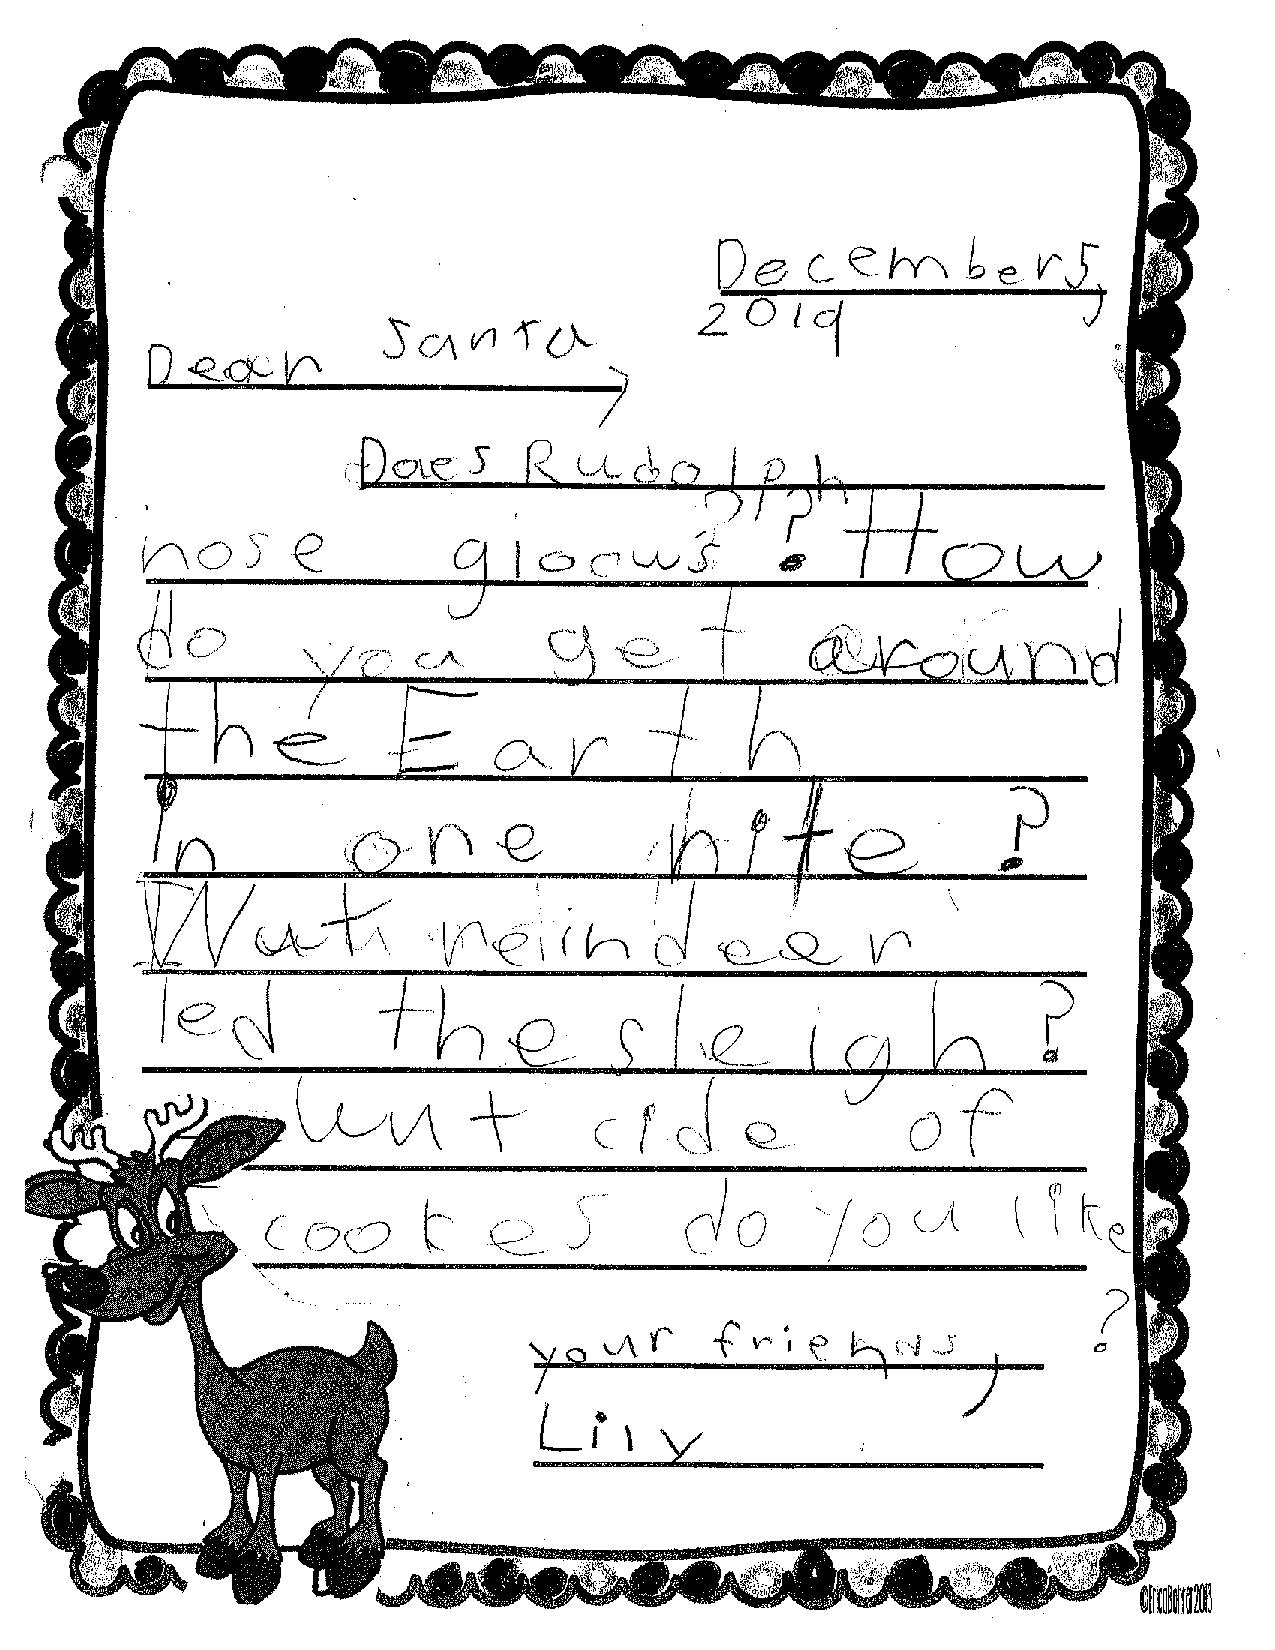 December 5,
2019
Dear Santa,
Does Rudolph
nose glows? How
do you get around
the Earth
in one nite?
Wut reindeer
led the sleigh?
Wut cide of
cookes do you like
?
your friends,
Lily